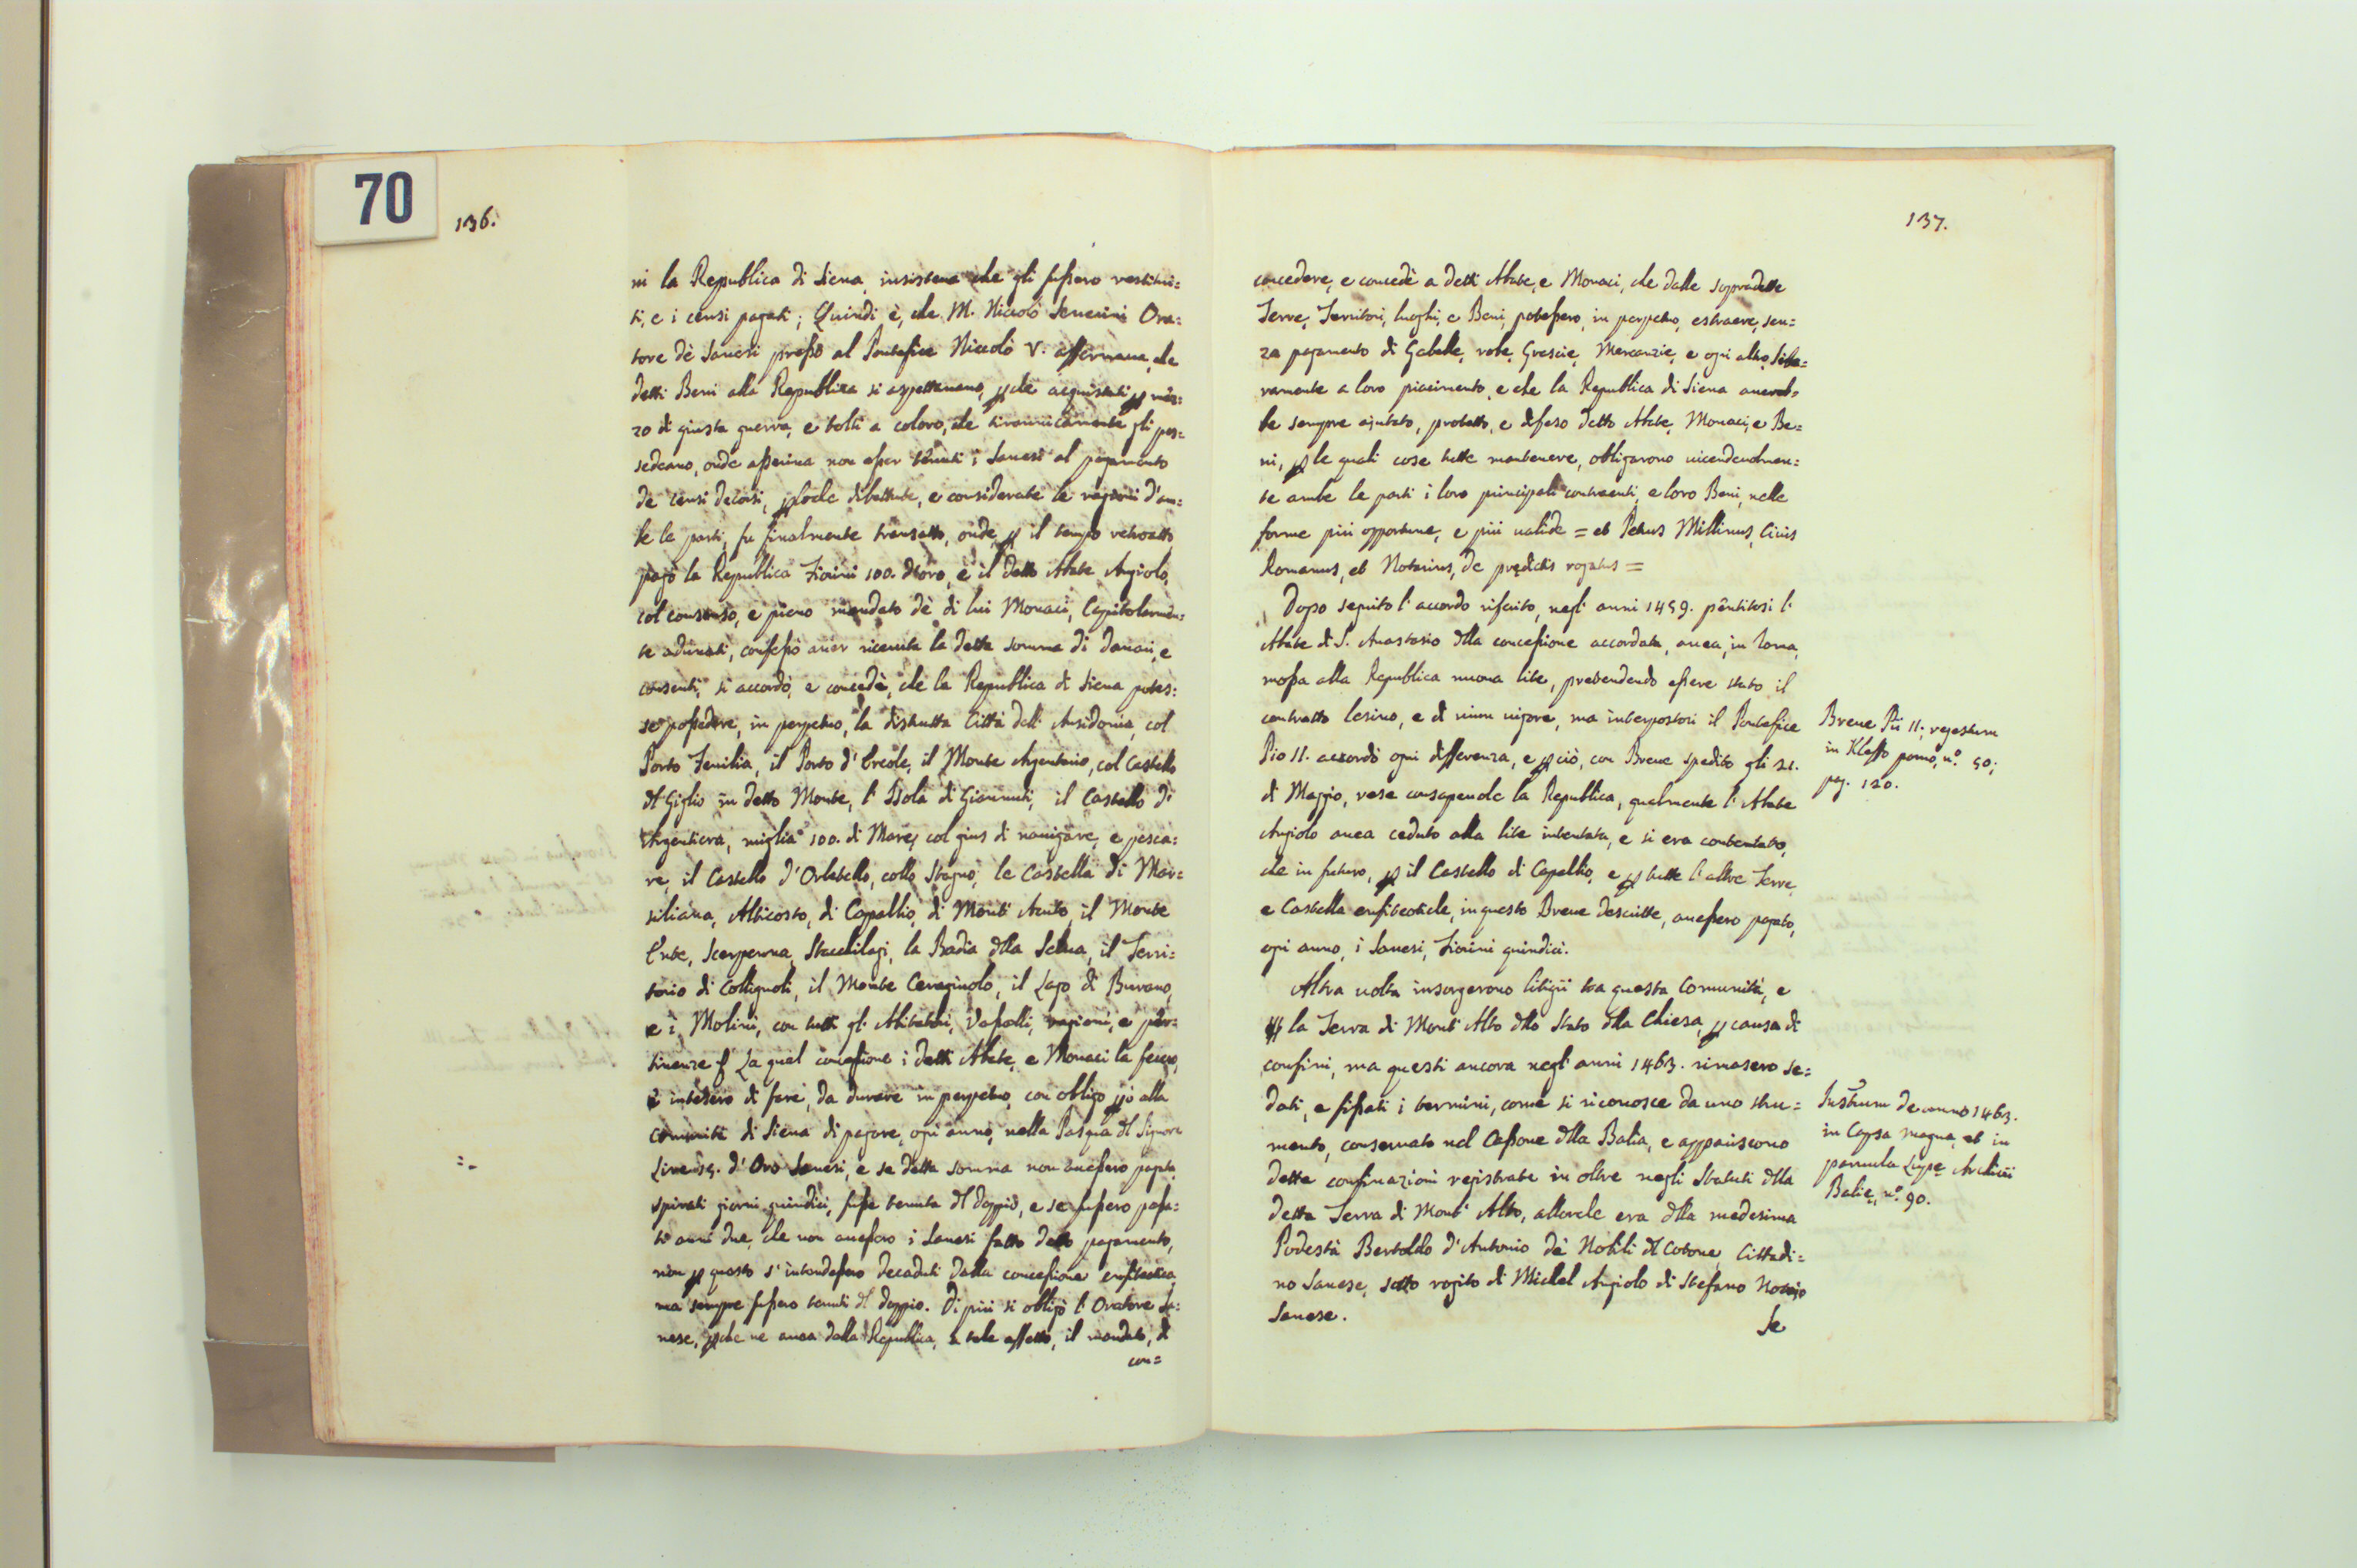 70
136.
ni la Republica di Siena, insisteva che gli fussero restitui=
ti, e i censi pagati; Quindi è, che M. Niccolò Severini Ora=
tore dè Sanesi presso al Pontefice Niccolò V. affermava, che
detti Beni alla Republica si aspettavano, p che acquistati p mez=
zo di giusta guerra, e tolti a coloro, che tirannicamente gli pos=
sedeano, onde asseriva non esser tenuti i Sanesi al pagamento
de censi decorsi, p loche dibattute, e considerate le ragioni d'am=
be le parti, fu finalmente transatto, onde, p il tempo retroatto
pagò la Republica Fiorini 100. d'oro, e il detto Abate Angiolo,
col consenso, e pieno mandato dè di lui Monaci, Capitolarmen=
te adunati, confessò aver ricevuta la detta somma di danari, e
consentì, si accordò, e concedè, che la Republica di Siena potes=
se possedere, in perpetuo, la distrutta Città dell' Ansidonia, col
Porto Fenilia, il Porto d'Ercole, il Monte Argentario, col Castello
dl Giglio in detto Monte, l'Isola di Giannuti, il Castello di
Argentiera, miglia 100. di Mare, col gius di navigare, e pesca=
re, il Castello d'Orbetello, collo Stagno, le Castella di Mar=
siliana, Altricosto, di Capalbio, di Mont' Acuto, il Monte
Ente, Scerpenna, Stacchilagi, la Badia dlla Selva, il Terri=
torio di Collignoli, il Monte Ceraginolo, il Lago di Burano,
e i Molini, con tutti gl' Abitatori, Vassalli, ragioni, e per=
tinenze La qual concessione i detti Abate, e Monaci la fecero,
e intesero di fare, da durare in perpetuo, con obligo pò alla
comunità di Siena di pagare, ogni anno, nella Pasqua dl Signore
Lire 15. d'Oro Sanesi, e se detta somma non avessero pagata,
spirati giorni quindici, fusse tenuta dl doppio, e se fussero passa=
ti anni due, che non avessero i Sanesi fatto detto pagamento,
non p questo s'intendessero decaduti dalla concessione enfiteotica,
ma sempre fussero tenuti dl doppio. Di più si obligò l'Oratore Sa=
nese, p che ne avea dalla Republica, a tale effetto, il mandato, di
con=
137.
concedere, e concedè a detti Abate, e Monaci, che dalle sopradette
Terre, Territori, luoghi, e Beni, potessero, in perpetuo, estraere, sen=
za pagamento di Gabelle, robe, Grascie, Mercanzie, e ogni altro, libe=
ramente a loro piacimento, e che la Republica di Siena avereb=
be sempre ajutato, protetto, e difeso detto Abate, Monaci, e Be=
ni, p le quali cose tutte mantenere, obligarono vicendevolmen=
te ambe le parti i loro principali contraenti, e loro Beni, nelle
forme più opportune, e più valide = et Petrus Millinus, Civis
Romanus, et Notarius, de prędictis rogatus =
Dopo seguito l'accordo riferito, negl' anni 1459. pentitosi l'
Abate di S. Anastasio dlla concessione accordata, avea, in Roma,
mossa alla Republica nuova lite, pretendendo essere stato il
contratto lesivo, e di niun vigore, ma interpostosi il Pontefice
Pio II. accordò ogni differenza, e p ciò, con Breve spedito gli 21.
di Maggio, rese consapevole la Republica, qualmente l'Abate
Angiolo avea ceduto alla lite intentata, e si era contentato,
che in futuro, p il Castello di Capalbio, e p tutte l'altre Terre,
e Castella enfiteotiche, in questo Breve descritte, avessero pagato,
ogni anno, i Sanesi, Fiorini quindici.
Breve Pii II. registrum
in Kleffo pomo, n.º 50;
pag. 120.
Altra volta insorgerono litigii tra questa Comunità, e
la Terra di Mont' Alto dllo Stato dlla Chiesa, p causa di
confini, ma questi ancora negl' anni 1463. rimasero se=
dati, e fissati i termini, come si riconosce da uno stru=
mento, conservato nel Cassone dlla Balia, e appariscono
dette confinazioni registrate in oltre negli Statuti dlla
detta Terra di Mont' Alto, allorche era dlla medesima
Podestà Bertoldo d'Antonio dè Nobili dl Cotone, Cittadi=
no Sanese, sotto rogito di Michel Angiolo di Stefano Notaio
Sanese.
Se
Instrum de anno 1463.
in Capsa magna, et in
parvula Lupę Archivii
Balię, n.º 90.